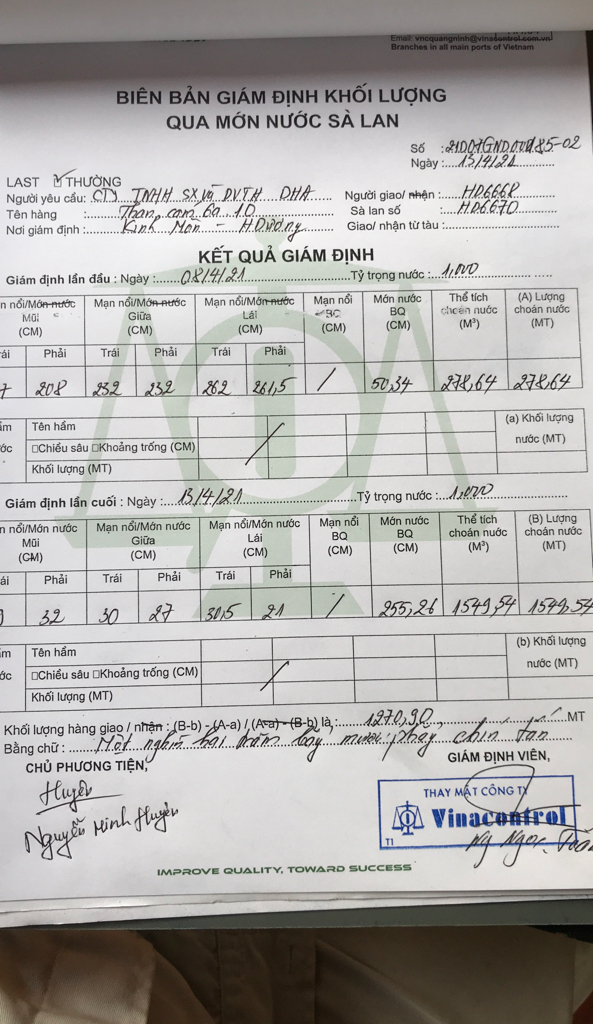 Email: vncquangninh@vinacontrol.com.vn
Branches in all main ports of Vietnam
BIÊN BẢN GIÁM ĐỊNH KHỐI LƯỢNG
QUA MỚN NƯỚC SÀ LAN
Số :
Ngày : 13/4/21
LAST ☑ THƯỜNG
Người yêu cầu: CTY TNHH SX và DVTH DHA Người giao/ nhận : HD6668
Tên hàng : Than cám 6a.10 Sà lan số : HD6670
Nơi giám định : Kinh Môn - H.Dương Giao/ nhận từ tàu :
KẾT QUẢ GIÁM ĐỊNH
Giám định lần đầu : Ngày : 08/4/21 Tỷ trọng nước : 1,000
n nổi/Mớn nước Mũi (CM) Mạn nổi/Mớn nước Giữa (CM) Mạn nổi/Mớn nước Lái (CM) Mạn nổi BQ (CM) Mớn nước BQ (CM) Thể tích choán nước (M³) (A) Lượng choán nước (MT)
ái Phải Trái Phải Trái Phải
7 208 232 232 262 261,5 / 50,34 278,64 278,64
ầm Tên hầm (a) Khối lượng
ớc □Chiều sâu □Khoảng trống (CM) nước (MT)
Khối lượng (MT)
Giám định lần cuối : Ngày : 13/4/21 Tỷ trọng nước : 1,000
n nổi/Mớn nước Mũi (CM) Mạn nổi/Mớn nước Giữa (CM) Mạn nổi/Mớn nước Lái (CM) Mạn nổi BQ (CM) Mớn nước BQ (CM) Thể tích choán nước (M³) (B) Lượng choán nước (MT)
ái Phải Trái Phải Trái Phải
32 30 27 30,5 21 / 255,26 1549,54 1549,54
ầm Tên hầm (b) Khối lượng
ớc □Chiều sâu □Khoảng trống (CM) nước (MT)
Khối lượng (MT)
Khối lượng hàng giao / nhận : (B-b) - (A-a) / (A-a) - (B-b) là : 1270,90 MT
Bằng chữ : Một nghìn hai trăm bảy mươi phảy chín tấn
CHỦ PHƯƠNG TIỆN, GIÁM ĐỊNH VIÊN,
Huyền
Nguyễn Minh Huyền
THAY MẶT CÔNG TY
Vinacontrol
T1
Ng Ngọc
IMPROVE QUALITY, TOWARD SUCCESS